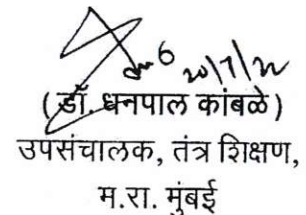 20/7/22
( डॉ. धनपाल कांबळे )
उपसंचालक, तंत्र शिक्षण,
म.रा. मुंबई